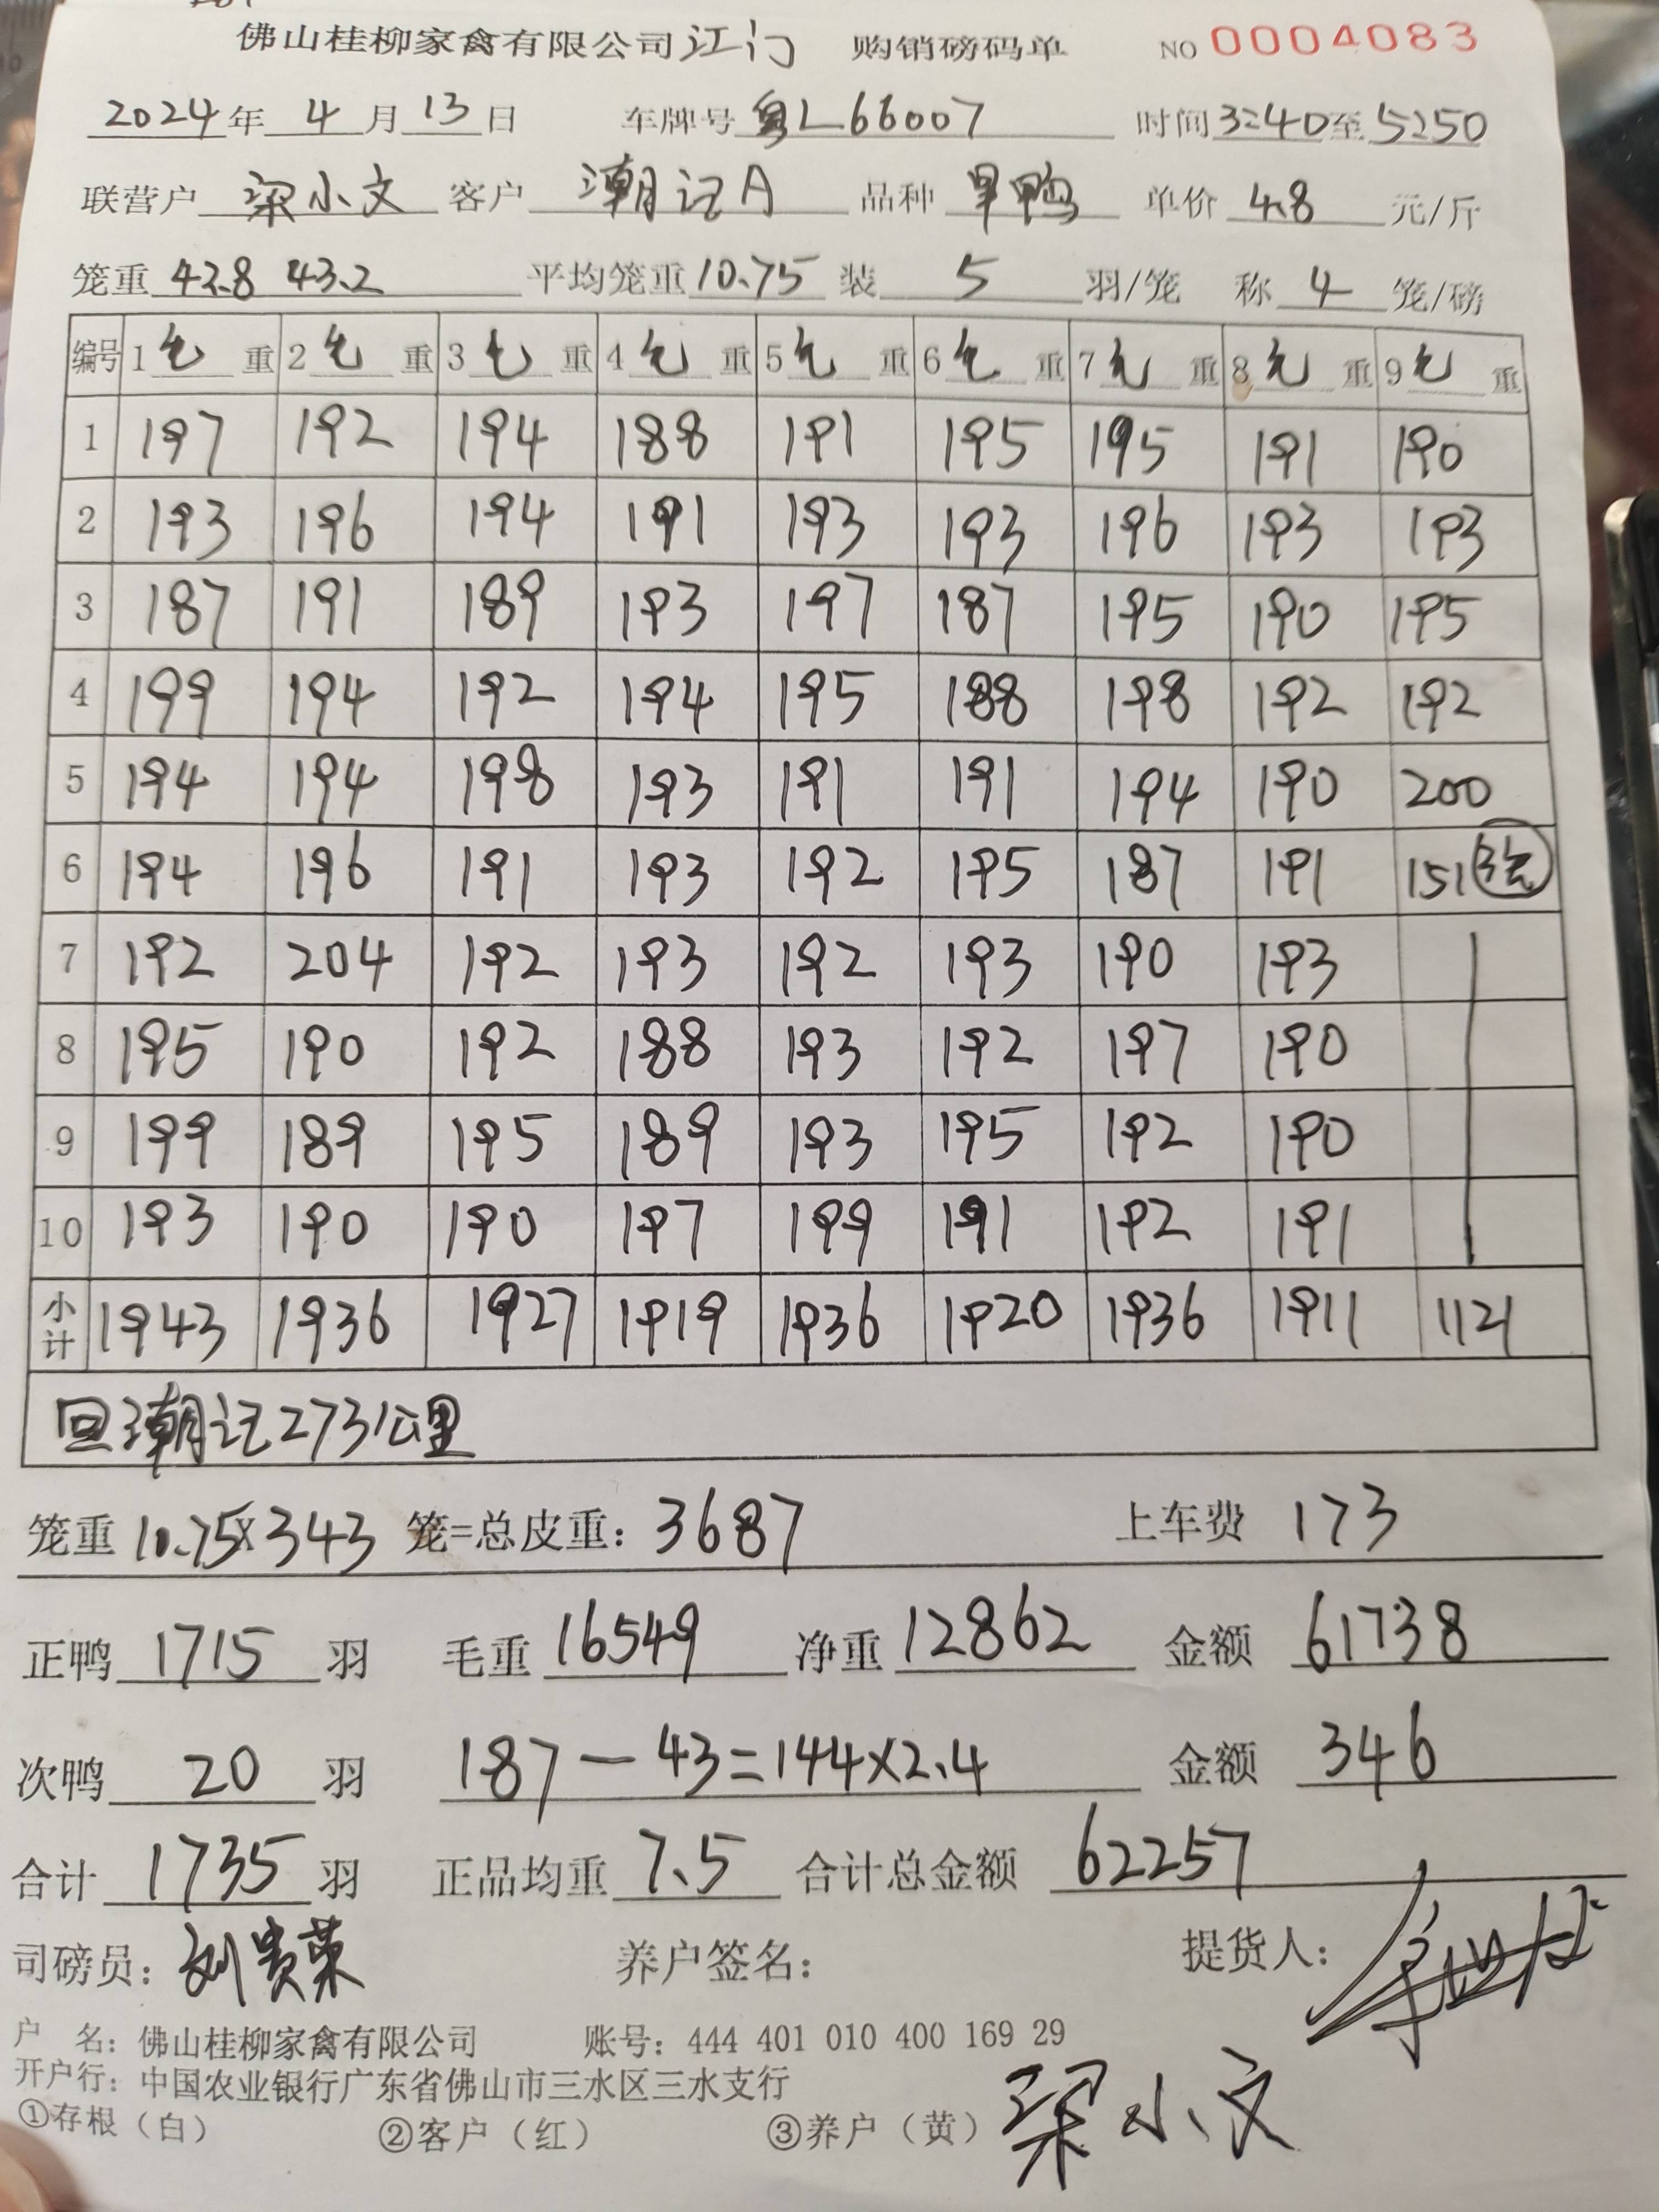 佛山桂柳家禽有限公司江门 购销磅码单 NO 0004083
2024年 4月13日 车牌号 粤L66007 时间3:40至5:50
联营户 梁小文 客户 潮记A 品种 旱鸭 单价 4.8 元/斤
笼重 42.8 43.2 平均笼重 10.75 装 5 羽/笼 称 4 笼/磅
编号 1毛重 2毛重 3毛重 4毛重 5毛重 6毛重 7毛重 8毛重 9毛重
1 197 192 194 188 191 195 195 191 190
2 193 196 194 191 193 193 196 193 193
3 187 191 189 193 197 187 195 190 195
4 199 194 192 194 195 188 198 192 192
5 194 194 198 193 191 191 194 190 200
6 194 196 191 193 192 195 187 191 151
7 192 204 192 193 192 193 190 193
8 195 190 192 188 193 192 197 190
9 199 189 195 189 193 195 192 190
10 193 190 190 197 199 191 192 191
小计 1943 1936 1927 1919 1936 1920 1936 1911 1121
回潮记273公里
笼重 10.75×343 笼=总皮重：3687 上车费 173
正鸭 1715 羽 毛重 16549 净重 12862 金额 61738
次鸭 20 羽 187-43=144×2.4 金额 346
合计 1735 羽 正品均重 7.5 合计总金额 62257
司磅员：刘贵荣 养户签名： 提货人：
户 名：佛山桂柳家禽有限公司 账号：444 401 010 400 169 29
开户行：中国农业银行广东省佛山市三水区三水支行
①存根（白） ②客户（红） ③养户（黄） 梁小文